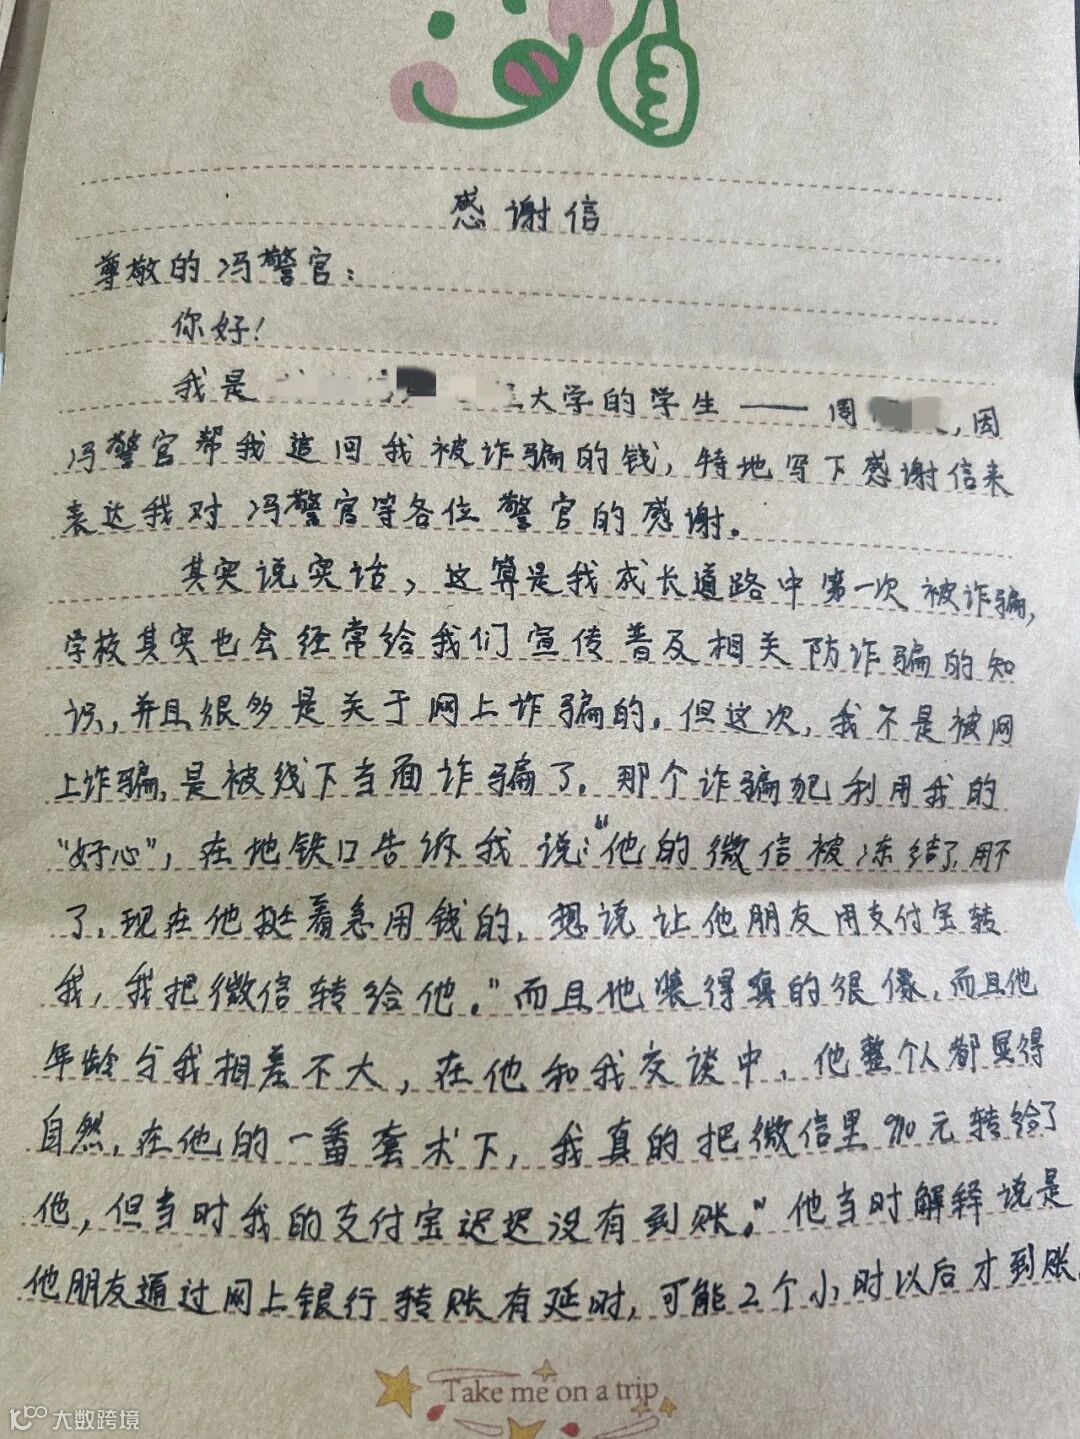 感谢信
尊敬的冯警官：
你好！
我是 大学的学生——周 ,因
冯警官帮我追回我被诈骗的钱，特地写下感谢信来
表达我对冯警官等各位警官的感谢。
其实说实话，这算是我成长道路中第一次被诈骗，
学校其实也会经常给我们宣传普及相关防诈骗的知
识，并且很多是关于网上诈骗的。但这次，我不是被网
上诈骗，是被线下当面诈骗了。那个诈骗犯利用我的
“好心”，在地铁口告诉我说：“他的微信被冻结了，用不
了，现在他挺着急用钱的，想说让他朋友用支付宝转
我，我把微信转给他。”而且他装得真的很像，而且他
年龄与我相差不大，在他和我交谈中，他整个人都显得
自然，在他的一番套术下，我真的把微信里910元转给了
他，但当时我的支付宝迟迟没有到账。”他当时解释说是
他朋友通过网上银行转账有延时，可能2个小时以后才到账。
Take me on a trip
大数跨境